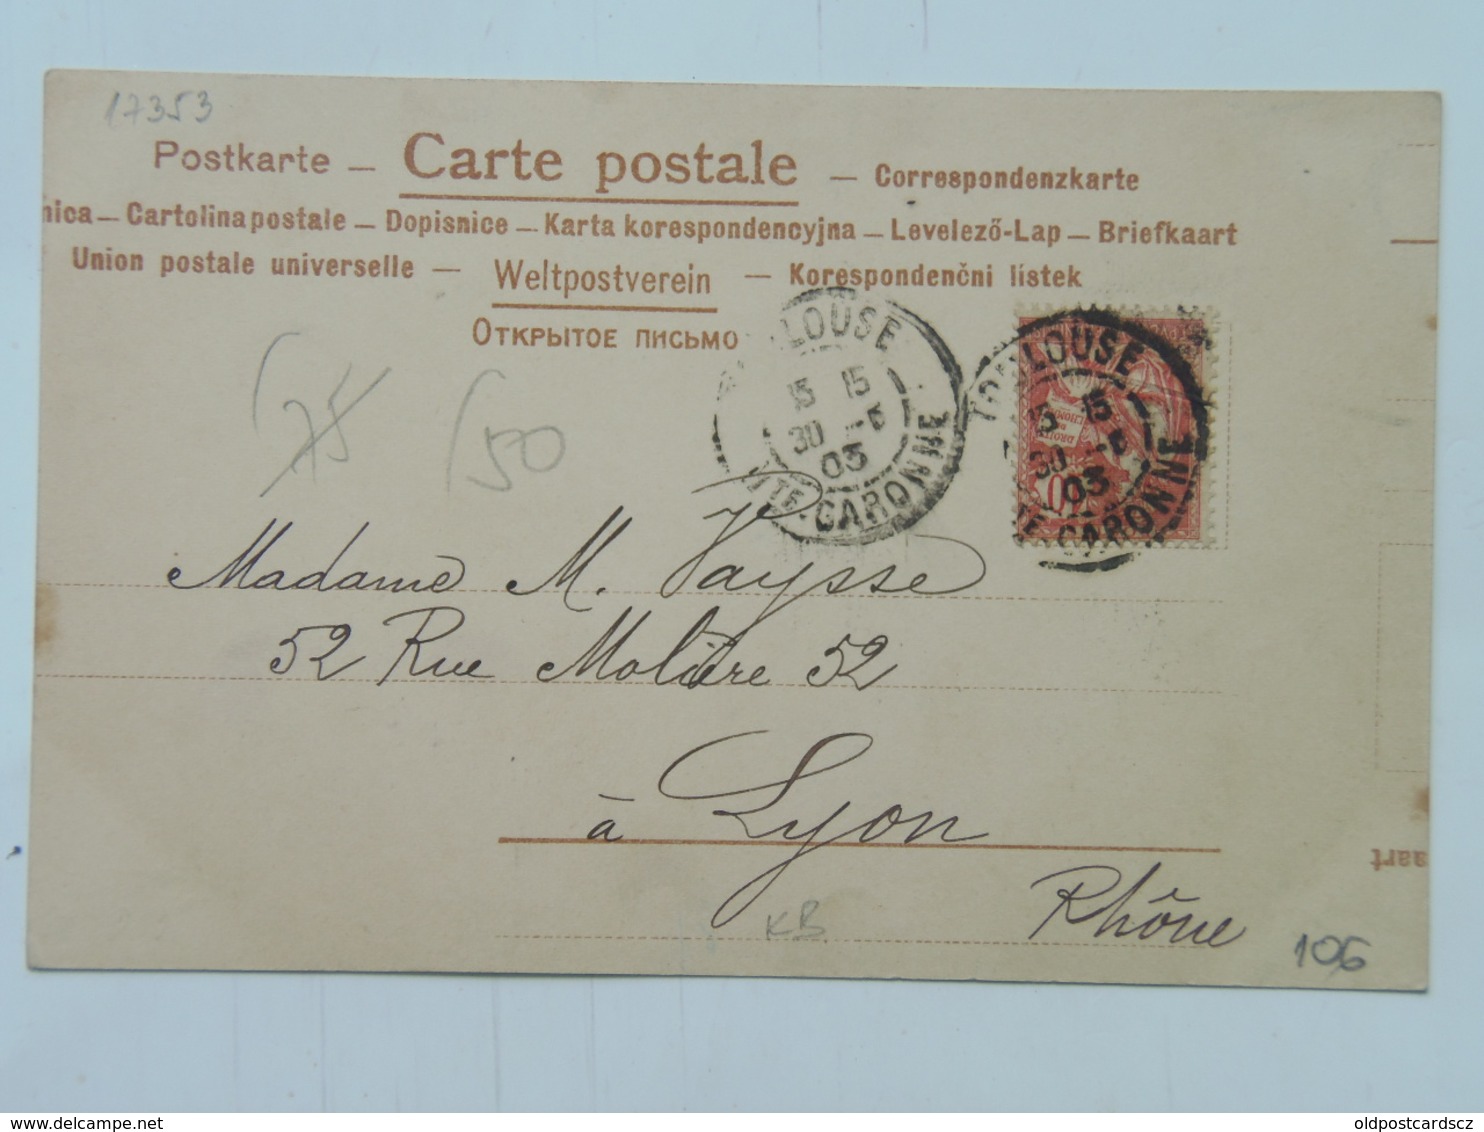 17353
Postkarte — Carte postale — Correspondenzkarte
nica — Cartolina postale — Dopisnice — Karta korespondencyjna — Levelező-Lap — Briefkaart
Union postale universelle — Weltpostverein — Korespondenčni lístek
Открытое письмо
LOUSE
15 15
30 -5
03
HTE-GARONNE
TOULOUSE
15 15
30 -5
03
TE-GARONNE
10
75
50
Madame M. Vaysse
52 Rue Molière 52
à Lyon
Rhône
KB
106
kaart
oldpostcardscz